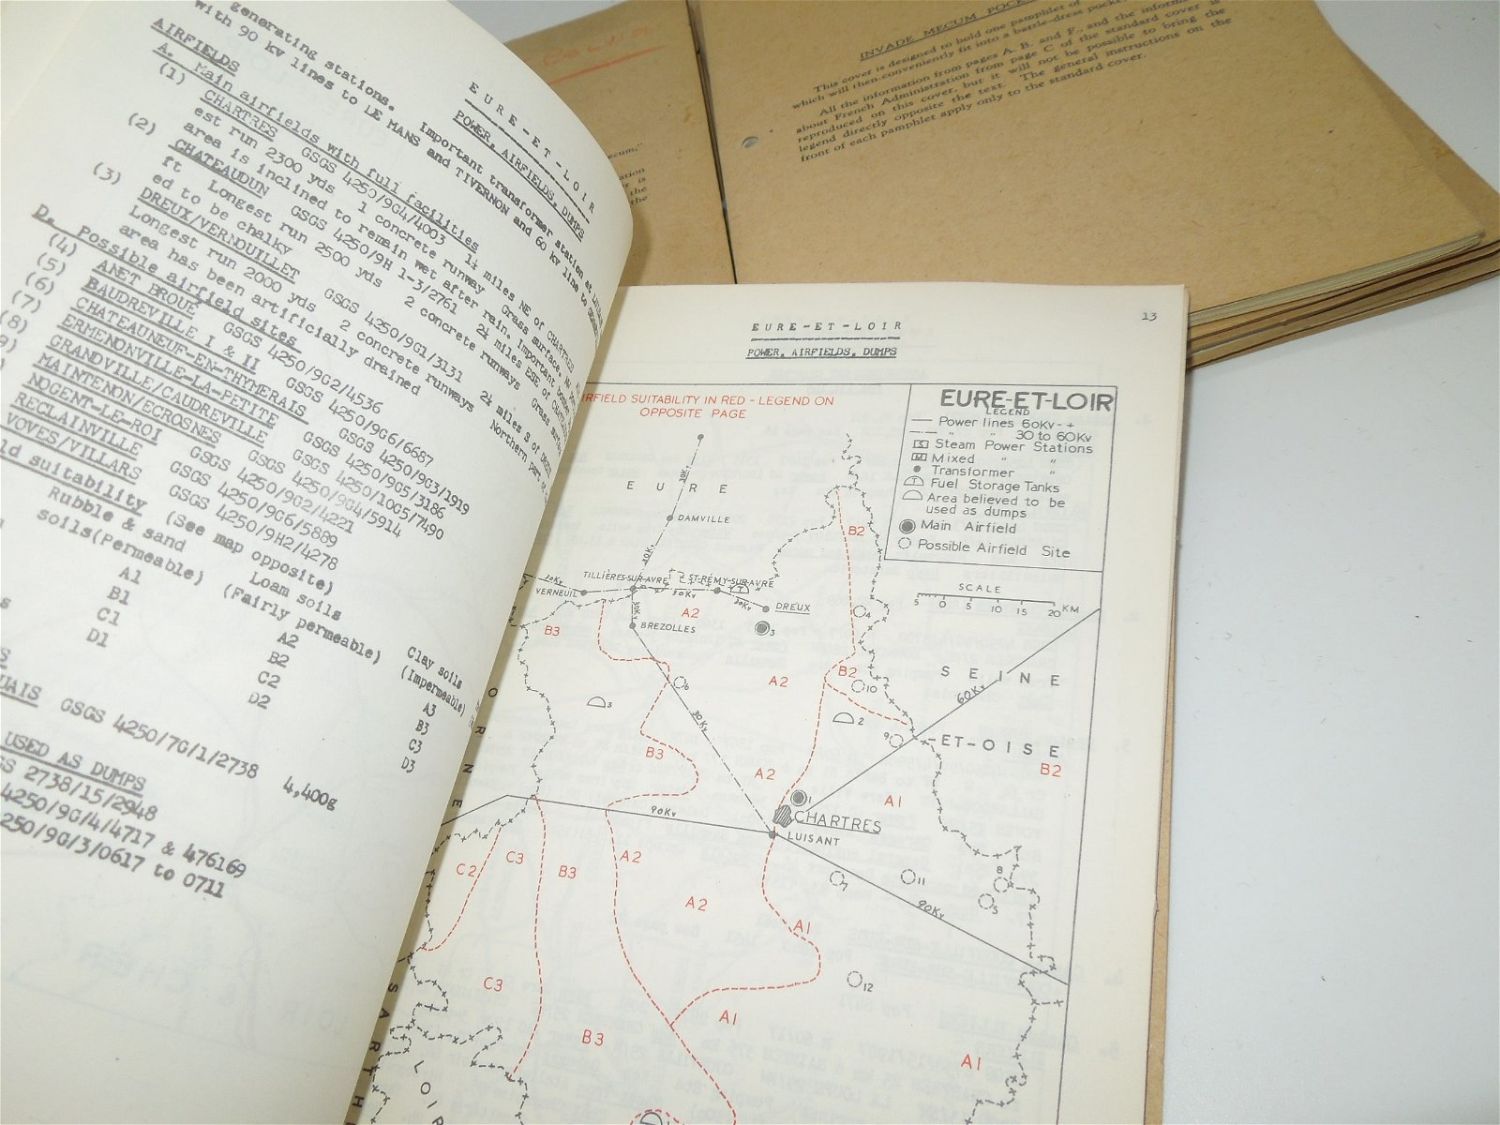 generating stations. Important transformer station at
with 90 kv lines to LE MANS and TIVERNON and 60 kv line to
EURE-ET-LOIR
POWER, AIRFIELDS, DUMPS
AIRFIELDS
A. Main airfields with full facilities
(1) CHARTRES GSGS 4250/9G4/4003 1½ miles NE of CHARTRES
est run 2300 yds 1 concrete runway Grass surface.
area is inclined to remain wet after rain. Important
(2) CHATEAUDUN GSGS 4250/9H 1-3/2761 2½ miles ESE of
ft Longest run 2500 yds 2 concrete runways Grass
ed to be chalky
(3) DREUX/VERNOUILLET GSGS 4250/9G1/3131 2½ miles S of
Longest run 2000 yds 2 concrete runways Northern part of
area has been artificially drained
D. Possible airfield sites
(4) ANET BROUE GSGS 4250/9G2/4536
(5) BAUDREVILLE I & II GSGS 4250/9G6/6687
(6) CHATEAUNEUF-EN-THYMERAIS GSGS 4250/9G3/1919
(7) ERMENONVILLE-LA-PETITE GSGS 4250/9G5/3186
(8) GRANDVILLE/CAUDREVILLE GSGS 4250/10G5/7490
MAINTENON/ECROSNES GSGS 4250/9G4/5914
NOGENT-LE-ROI GSGS 4250/9G2/4221
RECLAINVILLE GSGS 4250/9G6/5889
VOVES/VILLARS GSGS 4250/9H2/4278
suitability (See map opposite)
Rubble & sand Loam soils Clay soils
soils(Permeable) (Fairly permeable) (Impermeable)
A1 A2 A3
B1 B2 B3
C1 C2 C3
D1 D2 D3
GSGS 4250/7G/1/2738 4,400g
USED AS DUMPS
2738/15/2948
4250/9G/4/4717 & 476169
250/9G/3/0617 to 0711
INVADE MECUM
This cover is designed to hold one pamphlet of
which will then conveniently fit into a battle-dress pocket
All the information from pages A, B, and F, and the
about French Administration from page C of the standard cover is
reproduced on this cover, but it will not be possible to bring the
legend directly opposite the text. The general instructions on the
front of each pamphlet apply only to the standard cover.
13
EURE-ET-LOIR
POWER, AIRFIELDS, DUMPS
AIRFIELD SUITABILITY IN RED - LEGEND ON
OPPOSITE PAGE
EURE-ET-LOIR
LEGEND
Power lines 60Kv +
" " 30 to 60Kv
Steam Power Stations
Mixed " "
Transformer "
Fuel Storage Tanks
Area believed to be
used as dumps
Main Airfield
Possible Airfield Site
SCALE
5 0 5 10 15 20 KM
EURE
DAMVILLE
TILLIÈRES-SUR-AVRE
ST-RÉMY-SUR-AVRE
VERNEUIL
30Kv
DREUX
3
BREZOLLES
B2
4
A2
B3
B2
10
A2
6
3
2
30Kv
SEINE
60Kv
-ET-OISE
9
B2
B3
A2
A1
1
CHARTRES
LUISANT
90Kv
ORNE
C2
C3
B3
A2
A2
7
11
8
5
90Kv
A1
12
C3
A1
B3
A1
SARTH
LOIR